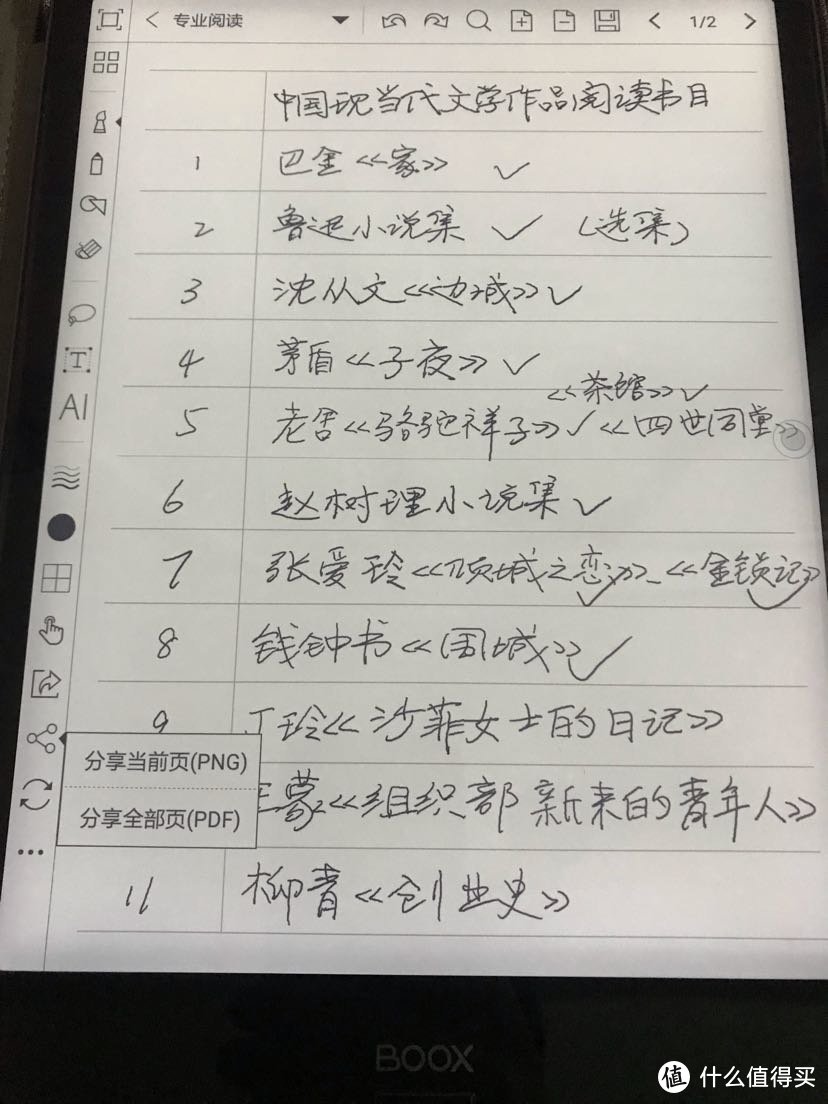 专业阅读 1/2
中国现当代文学作品阅读书目
1 巴金《家》 ✓
2 鲁迅小说集 ✓ (选集)
3 沈从文《边城》✓
4 茅盾《子夜》✓
《茶馆》✓
5 老舍《骆驼祥子》✓《四世同堂》
6 赵树理小说集 ✓
7 张爱玲《倾城之恋》✓、《金锁记》✓
8 钱钟书《围城》✓
9 丁玲《沙菲女士的日记》
王蒙《组织部新来的青年人》
11 柳青《创业史》
T
AI
分享当前页(PNG)
分享全部页(PDF)
BOOX
值 什么值得买